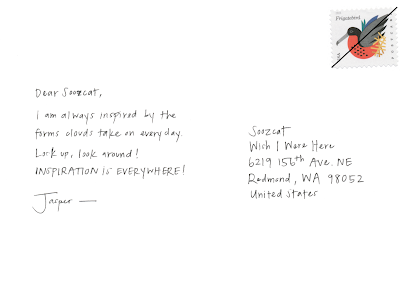 Dear Soozcat,
I am always inspired by the
forms clouds take on everyday.
Look up, look around!
INSPIRATION is EVERYWHERE!
Jasper —
Soozcat
Wish I Were Here
6219 156th Ave. NE
Redmond, WA 98052
United States